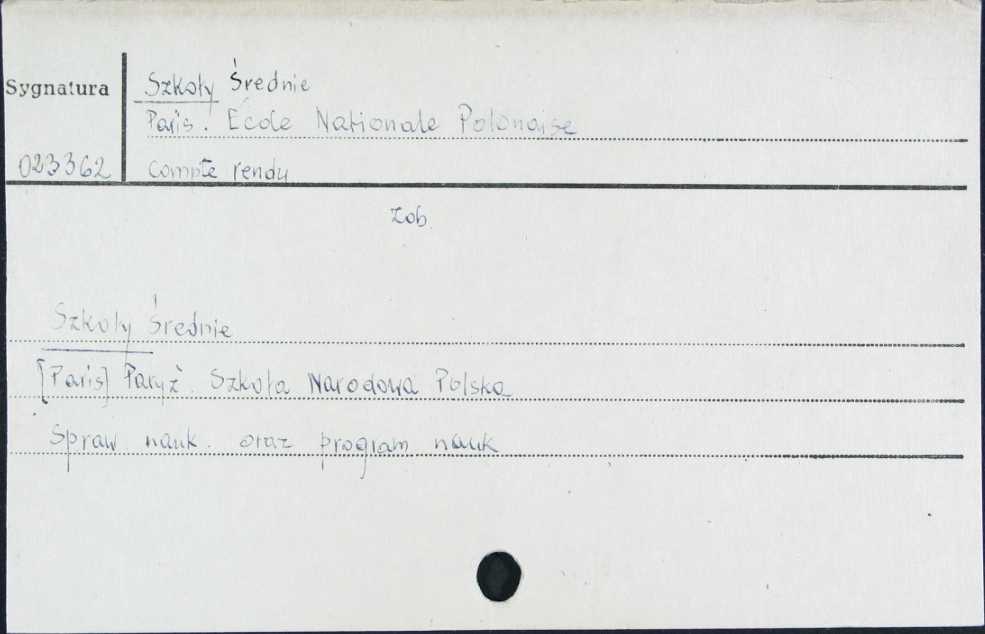 Sygnatura
Szkoły Średnie
Paris. École Nationale Polonaise
023362
Compte rendu
Zob
Szkoły Średnie
[Paris] Paryż. Szkoła Narodowa Polska
Spraw nauk. oraz program nauk